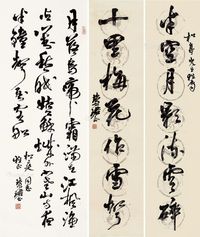 半空月影流雲碎
十里梅花作雪聲
月落烏啼霜滿天江楓漁
火對愁眠姑蘇城外寒山寺夜
半鐘聲到客船